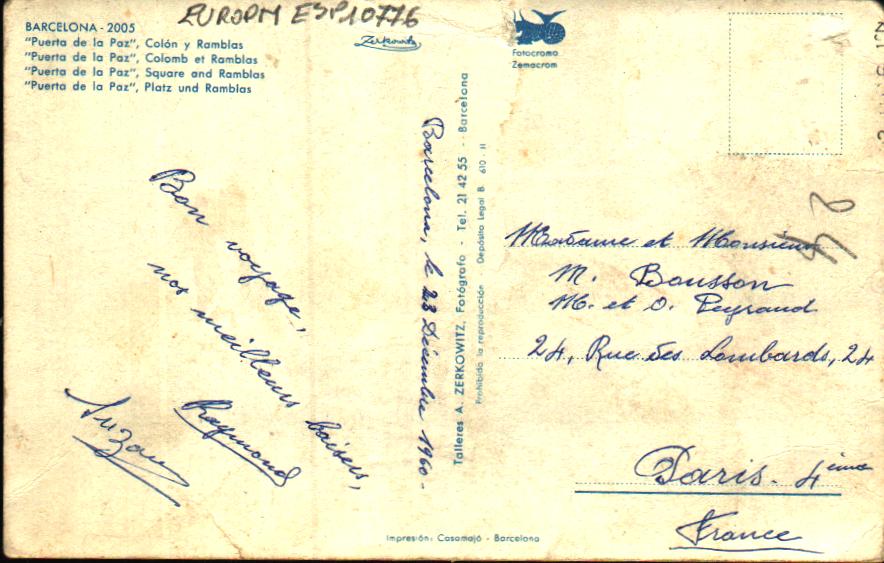 EUROPM ESP10776
BARCELONA - 2005
"Puerta de la Paz", Colón y Ramblas
"Puerta de la Paz", Colomb et Ramblas
"Puerta de la Paz", Square and Ramblas
"Puerta de la Paz", Platz und Ramblas
Zerkowitz
Fotocroma
Zemacrom
Bon voyage,
nos meilleurs baisers,
Raymond
Suzan
Barcelona, le 23 Décembre 1960 -
Talleres A. ZERKOWITZ, Fotógrafo - Tel. 21 42 55 - Barcelona
Prohibida la reproducción Depósito Legal B. 610 - II
Madame et Monsieur
M. Bousson
M. et O. Peyraud
24, Rue des Lombards, 24
Paris - 4ème
France
Impresión: Casamajó - Barcelona